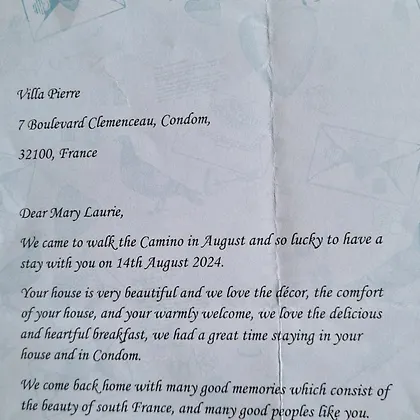 Villa Pierre
7 Boulevard Clemenceau, Condom,
32100, France
Dear Mary Laurie,
We came to walk the Camino in August and so lucky to have a
stay with you on 14th August 2024.
Your house is very beautiful and we love the décor, the comfort
of your house, and your warmly welcome, we love the delicious
and heartful breakfast, we had a great time staying in your
house and in Condom.
We come back home with many good memories which consist of
the beauty of south France, and many good peoples like you.